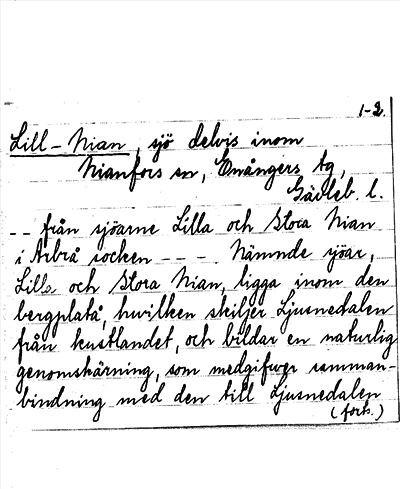 1-2.
Lill-Nian, sjö delvis inom
Nianfors sn, Enångers tg,
Gävleb. l.
-- från sjöarne Lilla och Stora Nian
i Arbrå socken ---. Nämnde sjöar,
Lilla och Stora Nian, ligga inom den
bergplatå, hvilken skiljer Ljusnedalen
från kustlandet, och bildar en naturlig
genomskärning, som medgifver samman-
bindning med den till Ljusnedalen
(forts.)